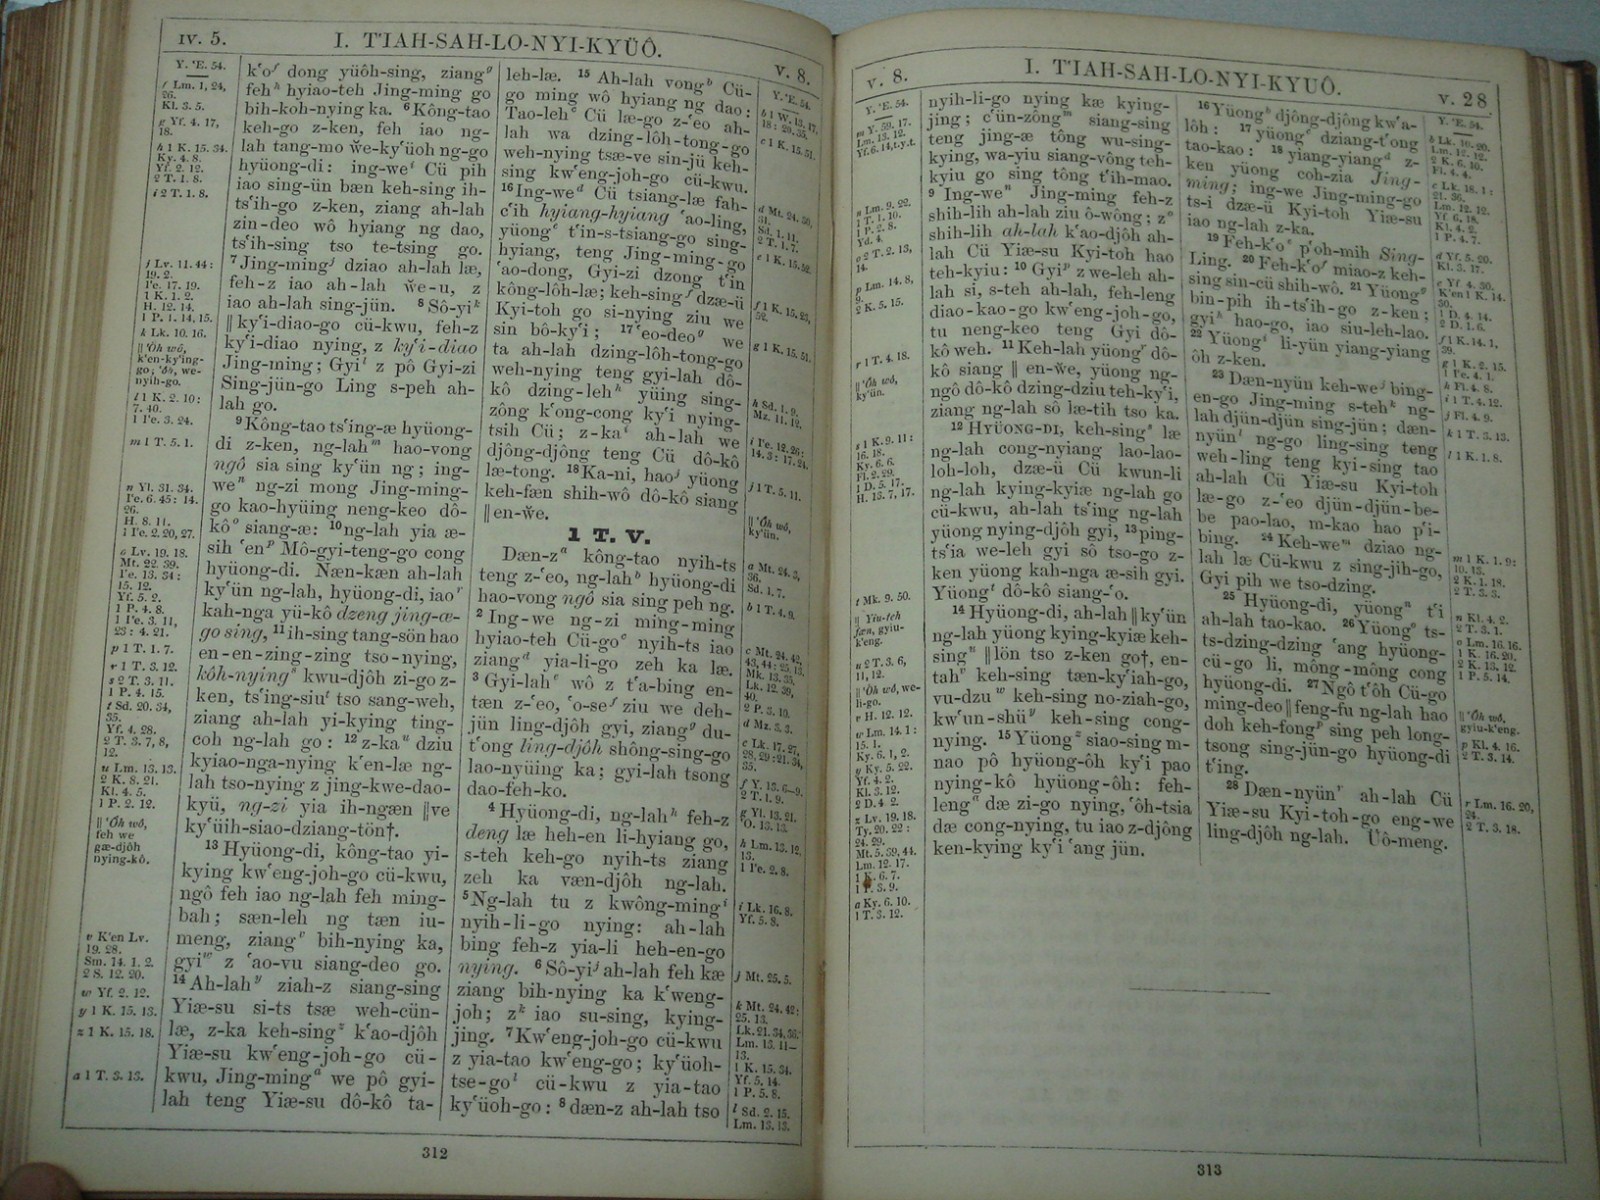 IV. 5.
I. T'IAH-SAH-LO-NYI-KYÜÔ.
V. 8.
Y. 'E. 54.
f Lm. 1, 24,
26.
Kl. 3. 5.
g Yf. 4. 17,
18.
h 1 K. 15. 34.
Ky. 4. 8.
Yf. 2. 12.
2 T. 1. 8.
i 2 T. 1. 8.
j Lv. 11. 44:
19. 2.
I'e. 17. 19.
1 K. 1. 2.
H. 12. 14.
1 P. 1. 14, 15.
k Lk. 10. 16.
‖ 'Ôh wô,
k'en-ky'ing-
go; 'ôh, we-
nyih-go.
l 1 K. 2. 10:
7. 40.
1 I'e. 3. 24.
m 1 T. 5. 1.
n Yl. 31. 34.
I'e. 6. 45: 14.
26.
H. 8. 11.
1 I'e. 2. 20, 27.
o Lv. 19. 18.
Mt. 22. 39.
I'e. 13. 34:
15. 12.
Yf. 5. 2.
1 P. 4. 8.
1 I'e. 3. 11,
23: 4. 21.
p 1 T. 1. 7.
r 1 T. 3. 12.
s 2 T. 3. 11.
1 P. 4. 15.
t Sd. 20. 34,
35.
Yf. 4. 28.
2 T. 3. 7, 8,
12.
u Lm. 13. 13.
2 K. 8. 21.
Kl. 4. 5.
1 P. 2. 12.
‖ 'Ôh wô,
feh we
gæ-djôh
nying-kô.
v K'en Lv.
19. 28.
Sm. 14. 1. 2.
2 S. 12. 20.
w Yf. 2. 12.
y 1 K. 15. 13.
z 1 K. 15. 18.
a 1 T. 3. 13.
k'o f dong yüôh-sing, ziang g
feh h hyiao-teh Jing-ming go
bih-koh-nying ka. 6 Kông-tao
keh-go z-ken, feh iao ng-
lah tang-mo w̌e-ky'üoh ng-go
hyüong-di: ing-we i Cü pih
iao sing-ün bæn keh-sing ih-
ts'ih-go z-ken, ziang ah-lah
zin-deo wô hyiang ng dao,
ts'ih-sing tso te-tsing go.
7 Jing-ming j dziao ah-lah læ,
feh-z iao ah-lah w̌e-u, z
iao ah-lah sing-jün. 8 Sô-yi k
‖ ky'i-diao-go cü-kwu, feh-z
ky'i-diao nying, z ky'i-diao
Jing-ming; Gyi l z pô Gyi-zi
Sing-jün-go Ling s-peh ah-
lah go.
9 Kông-tao ts'ing-æ hyüong-
di z-ken, ng-lah m hao-vong
ngô sia sing ky'ün ng; ing-
we n ng-zi mong Jing-ming-
go kao-hyüing neng-keo dô-
kô o siang-æ: 10 ng-lah yia æ-
sih 'en p Mô-gyi-teng-go cong
hyüong-di. Næn-kæn ah-lah
ky'ün ng-lah, hyüong-di, iao r
kah-nga yü-kô dzeng jing-æ-
go sing, 11 ih-sing tang-sön hao
en-en-zing-zing tso-nying,
kôh-nying s kwu-djôh zi-go z-
ken, ts'ing-siu t tso sang-weh,
ziang ah-lah yi-kying ting-
coh ng-lah go: 12 z-ka u dziu
kyiao-nga-nying k'en-læ ng-
lah tso-nying z jing-kwe-dao-
kyü, ng-zi yia ih-ngæn ‖ ve
ky'üih-siao-dziang-tön†.
13 Hyüong-di, kông-tao yi-
kying kw'eng-joh-go cü-kwu,
ngô feh iao ng-lah feh ming-
bah; sæn-leh ng tæn iu-
meng, ziang v bih-nying ka,
gyi w z 'ao-vu siang-deo go.
14 Ah-lah y ziah-z siang-sing
Yiæ-su si-ts tsæ weh-cün-
læ, z-ka keh-sing z k'ao-djôh
Yiæ-su kw'eng-joh-go cü-
kwu, Jing-ming a we pô gyi-
lah teng Yiæ-su dô-kô ta-
leh-læ. 15 Ah-lah vong b Cü-
go ming wô hyiang ng dao:
Tao-leh c Cü læ-go z-'eo ah-
lah wa dzing-lôh-tong-go
weh-nying tsæ-ve sin-jü keh-
sing kw'eng-joh-go cü-kwu.
16 Ing-we d Cü tsiang-læ fah-
c'ih hyiang-hyiang 'ao-ling,
yüong e t'in-s-tsiang-go sing-
hyiang, teng Jing-ming-go
'ao-dong, Gyi-zi dzong t'in
kông-lôh-læ; keh-sing f dzæ-ü
Kyi-toh go si-nying ziu we
sin bô-ky'i; 17 'eo-deo g we
ta ah-lah dzing-lôh-tong-go
weh-nying teng gyi-lah dô-
kô dzing-leh h yüing sing-
zông k'ong-cong ky'i nying-
tsih Cü; z-ka i ah-lah we
djông-djông teng Cü dô-kô
læ-tong. 18 Ka-ni, hao j yüong
keh-fæn shih-wô dô-kô siang
‖ en-w̌e.
1 T. V.
Dæn-z a kông-tao nyih-ts
teng z-'eo, ng-lah b hyüong-di
hao-vong ngô sia sing peh ng.
2 Ing-we ng-zi ming-ming
hyiao-teh Cü-go c nyih-ts iao
ziang d yia-li-go zeh ka læ.
3 Gyi-lah e wô z t'a-bing en-
tæn z-'eo, 'o-se f ziu we deh-
jün ling-djôh gyi, ziang g du-
t'ong ling-djôh shông-sing-go
lao-nyüing ka; gyi-lah tsong
dao-feh-ko.
4 Hyüong-di, ng-lah h feh-z
deng læ heh-en li-hyiang go,
s-teh keh-go nyih-ts ziang
zeh ka væn-djôh ng-lah.
5 Ng-lah tu z kwông-ming i
nyih-li-go nying: ah-lah
bing feh-z yia-li heh-en-go
nying. 6 Sô-yi j ah-lah feh kæ
ziang bih-nying ka k'weng-
joh; z k iao su-sing, kying-
jing. 7 Kw'eng-joh-go cü-kwu
z yia-tao kw'eng-go; ky'üoh-
tse-go l cü-kwu z yia-tao
ky'üoh-go: 8 dæn-z ah-lah tso
Y. 'E. 54.
b 1 W. 13, 17,
18: 20. 35.
c 1 K. 15. 51.
d Mt. 24. 30,
31.
Sd. 1. 11.
2 T. 1. 7.
e 1 K. 15. 52.
f 1 K. 15. 23,
52.
g 1 K. 15. 51.
h Sd. 1. 9.
Mz. 11. 12.
i I'e. 12. 26:
14. 3: 17. 24.
j 1 T. 5. 11.
‖ 'Ôh wô,
ky'ün.
a Mt. 24. 3,
36.
Sd. 1. 7.
b 1 T. 4. 9.
c Mt. 24. 42,
43, 44: 25. 13.
Mk. 13. 35,
Lk. 12. 39,
40.
2 P. 3. 10.
d Mz. 3. 3.
e Lk. 17. 27,
28, 29: 21. 34,
35.
f Y. 13. 6–9.
2 T. 1. 9.
g Yl. 13. 21.
'O. 13. 13.
h Lm. 13. 12,
13.
1 I'e. 2. 8.
i Lk. 16. 8.
Yf. 5. 8.
j Mt. 25. 5.
k Mt. 24. 42:
25. 13.
Lk. 21. 34, 36.
Lm. 13. 11–
13.
1 K. 15. 34.
Yf. 5. 14.
1 P. 5. 8.
l Sd. 2. 15.
Lm. 13. 13.
312
V. 8.
I. T'IAH-SAH-LO-NYI-KYUÔ.
V. 28
Y. 'E. 54.
m Y. 59. 17.
Lm. 13. 12.
Yf. 6. 14, t.-y.t.
n Lm. 9. 22.
1 T. 1. 10.
1 P. 2. 8.
Yd. 4.
o 2 T. 2. 13,
14.
p Lm. 14. 8,
9.
2 K. 5. 15.
r 1 T. 4. 18.
‖ 'Ôh wô,
ky'ün.
s 1 K. 9. 11:
16. 18.
Ky. 6. 6.
Fl. 2. 29.
1 D. 5. 17.
H. 13. 7, 17.
t Mk. 9. 50.
‖ Yiu-teh
fæn, gyiu-
k'eng.
u 2 T. 3. 6,
11, 12.
‖ 'Ôh wô, we-
li-go.
v H. 12. 12.
w Lm. 14. 1:
15. 1.
Ky. 6. 1, 2.
y Ky. 5. 22.
Yf. 4. 2.
Kl. 3. 12.
2 D. 4 2.
z Lv. 19. 18.
Ty. 20. 22:
24. 29.
Mt. 5. 39, 44.
Lm. 12. 17.
1 K. 6. 7.
1 P. 3. 9.
a Ky. 6. 10.
1 T. 3. 12.
nyih-li-go nying kæ kying-
jing; c'ün-zông m siang-sing
teng jing-æ tông wu-sing-
kying, wa-yiu siang-vông teh-
kyiu go sing tông t'ih-mao.
9 Ing-we n Jing-ming feh-z
shih-lih ah-lah ziu ô-wông; z o
shih-lih ah-lah k'ao-djôh ah-
lah Cü Yiæ-su Kyi-toh hao
teh-kyiu: 10 Gyi p z we-leh ah-
lah si, s-teh ah-lah, feh-leng
diao-kao-go kw'eng-joh-go,
tu neng-keo teng Gyi dô-
kô weh. 11 Keh-lah yüong r dô-
kô siang ‖ en-w̌e, yüong ng-
ngô dô-kô dzing-dziu teh-ky'i,
ziang ng-lah sô læ-tih tso ka.
12 HYÜONG-DI, keh-sing s læ
ng-lah cong-nyiang lao-lao-
loh-loh, dzæ-ü Cü kwun-li
ng-lah kying-kyiæ ng-lah go
cü-kwu, ah-lah ts'ing ng-lah
yüong nying-djôh gyi, 13 ping-
ts'ia we-leh gyi sô tso-go z-
ken yüong kah-nga æ-sih gyi.
Yüong t dô-kô siang-'o.
14 Hyüong-di, ah-lah ‖ ky'ün
ng-lah yüong kying-kyiæ keh-
sing u ‖ lön tso z-ken go†, en-
tah v keh-sing tæn-ky'iah-go,
vu-dzu w keh-sing no-ziah-go,
kw'un-shü y keh-sing cong-
nying. 15 Yüong z siao-sing m-
nao pô hyüong-ôh ky'i pao
nying-kô hyüong-ôh: feh-
leng a dæ zi-go nying, 'ôh-tsia
dæ cong-nying, tu iao z-djông
ken-kying ky'i 'ang jün.
16 Yüong b djông-djông kw'a-
lôh: 17 yüong c dziang-t'ong
tao-kao: 18 yiang-yiang d z-
ken yüong coh-zia Jing-
ming; ing-we Jing-ming-go
ts-i dzæ-ü Kyi-toh Yiæ-su
iao ng-lah z-ka.
19 Feh-k'o e p'oh-mih Sing-
Ling. 20 Feh-k'o f miao-z keh-
sing sin-cü shih-wô. 21 Yüong g
bin-pih ih-ts'ih-go z-ken;
gyi h hao-go, iao siu-leh-lao.
22 Yüong i li-yün yiang-yiang
ôh z-ken.
23 Dæn-nyün keh-we j bing-
en-go Jing-ming s-teh k ng-
lah djün-djün sing-jün; dæn-
nyün l ng-go ling-sing teng
weh-ling teng kyi-sing tao
ah-lah Cü Yiæ-su Kyi-toh
læ-go z-'eo djün-djün-be-
be pao-lao, m-kao hao p'i-
bing. 24 Keh-we m dziao ng-
lah læ Cü-kwu z sing-jih-go,
Gyi pih we tso-dzing.
25 Hyüong-di, yüong n t'i
ah-lah tao-kao. 26 Yüong o ts-
ts-dzing-dzing 'ang hyüong-
cü-go li, mông-mông cong
hyüong-di. 27 Ngô t'ôh Cü-go
ming-deo ‖ feng-fu ng-lah hao
doh keh-fong p sing peh long-
tsong sing-jün-go hyüong-di
t'ing.
28 Dæn-nyün r ah-lah Cü
Yiæ-su Kyi-toh-go eng-we
ling-djôh ng-lah. Üô-meng.
Y. 'E. 54.
b Lk. 10. 20.
Lm. 12. 12.
2 K. 6. 10.
Fl. 4. 4.
c Lk. 18. 1:
21. 36.
Lm. 12. 12.
Yf. 6. 18.
Kl. 4. 2.
1 P. 4. 7.
d Yf. 5. 20.
Kl. 3. 17.
e Yf. 4. 30.
K'en 1 K. 14.
30.
1 D. 4. 14.
2 D. 1. 6.
f 1 K. 14. 1,
39.
g 1 K. 2. 15.
1 I'e. 4. 1.
h Fl. 4. 8.
i 1 T. 4. 12.
j Fl. 4. 9.
k 1 T. 3. 13.
l 1 K. 1. 8.
m 1 K. 1. 9:
10. 13.
2 K. 1. 18.
2 T. 3. 3.
n Kl. 4. 2.
2 T. 3. 1.
o Lm. 16. 16.
1 K. 16. 20.
2 K. 13. 12.
1 P. 5. 14.
‖ 'Ôh wô,
gyiu-k'eng.
p Kl. 4. 16.
2 T. 3. 14.
r Lm. 16. 20,
24.
2 T. 3. 18.
313